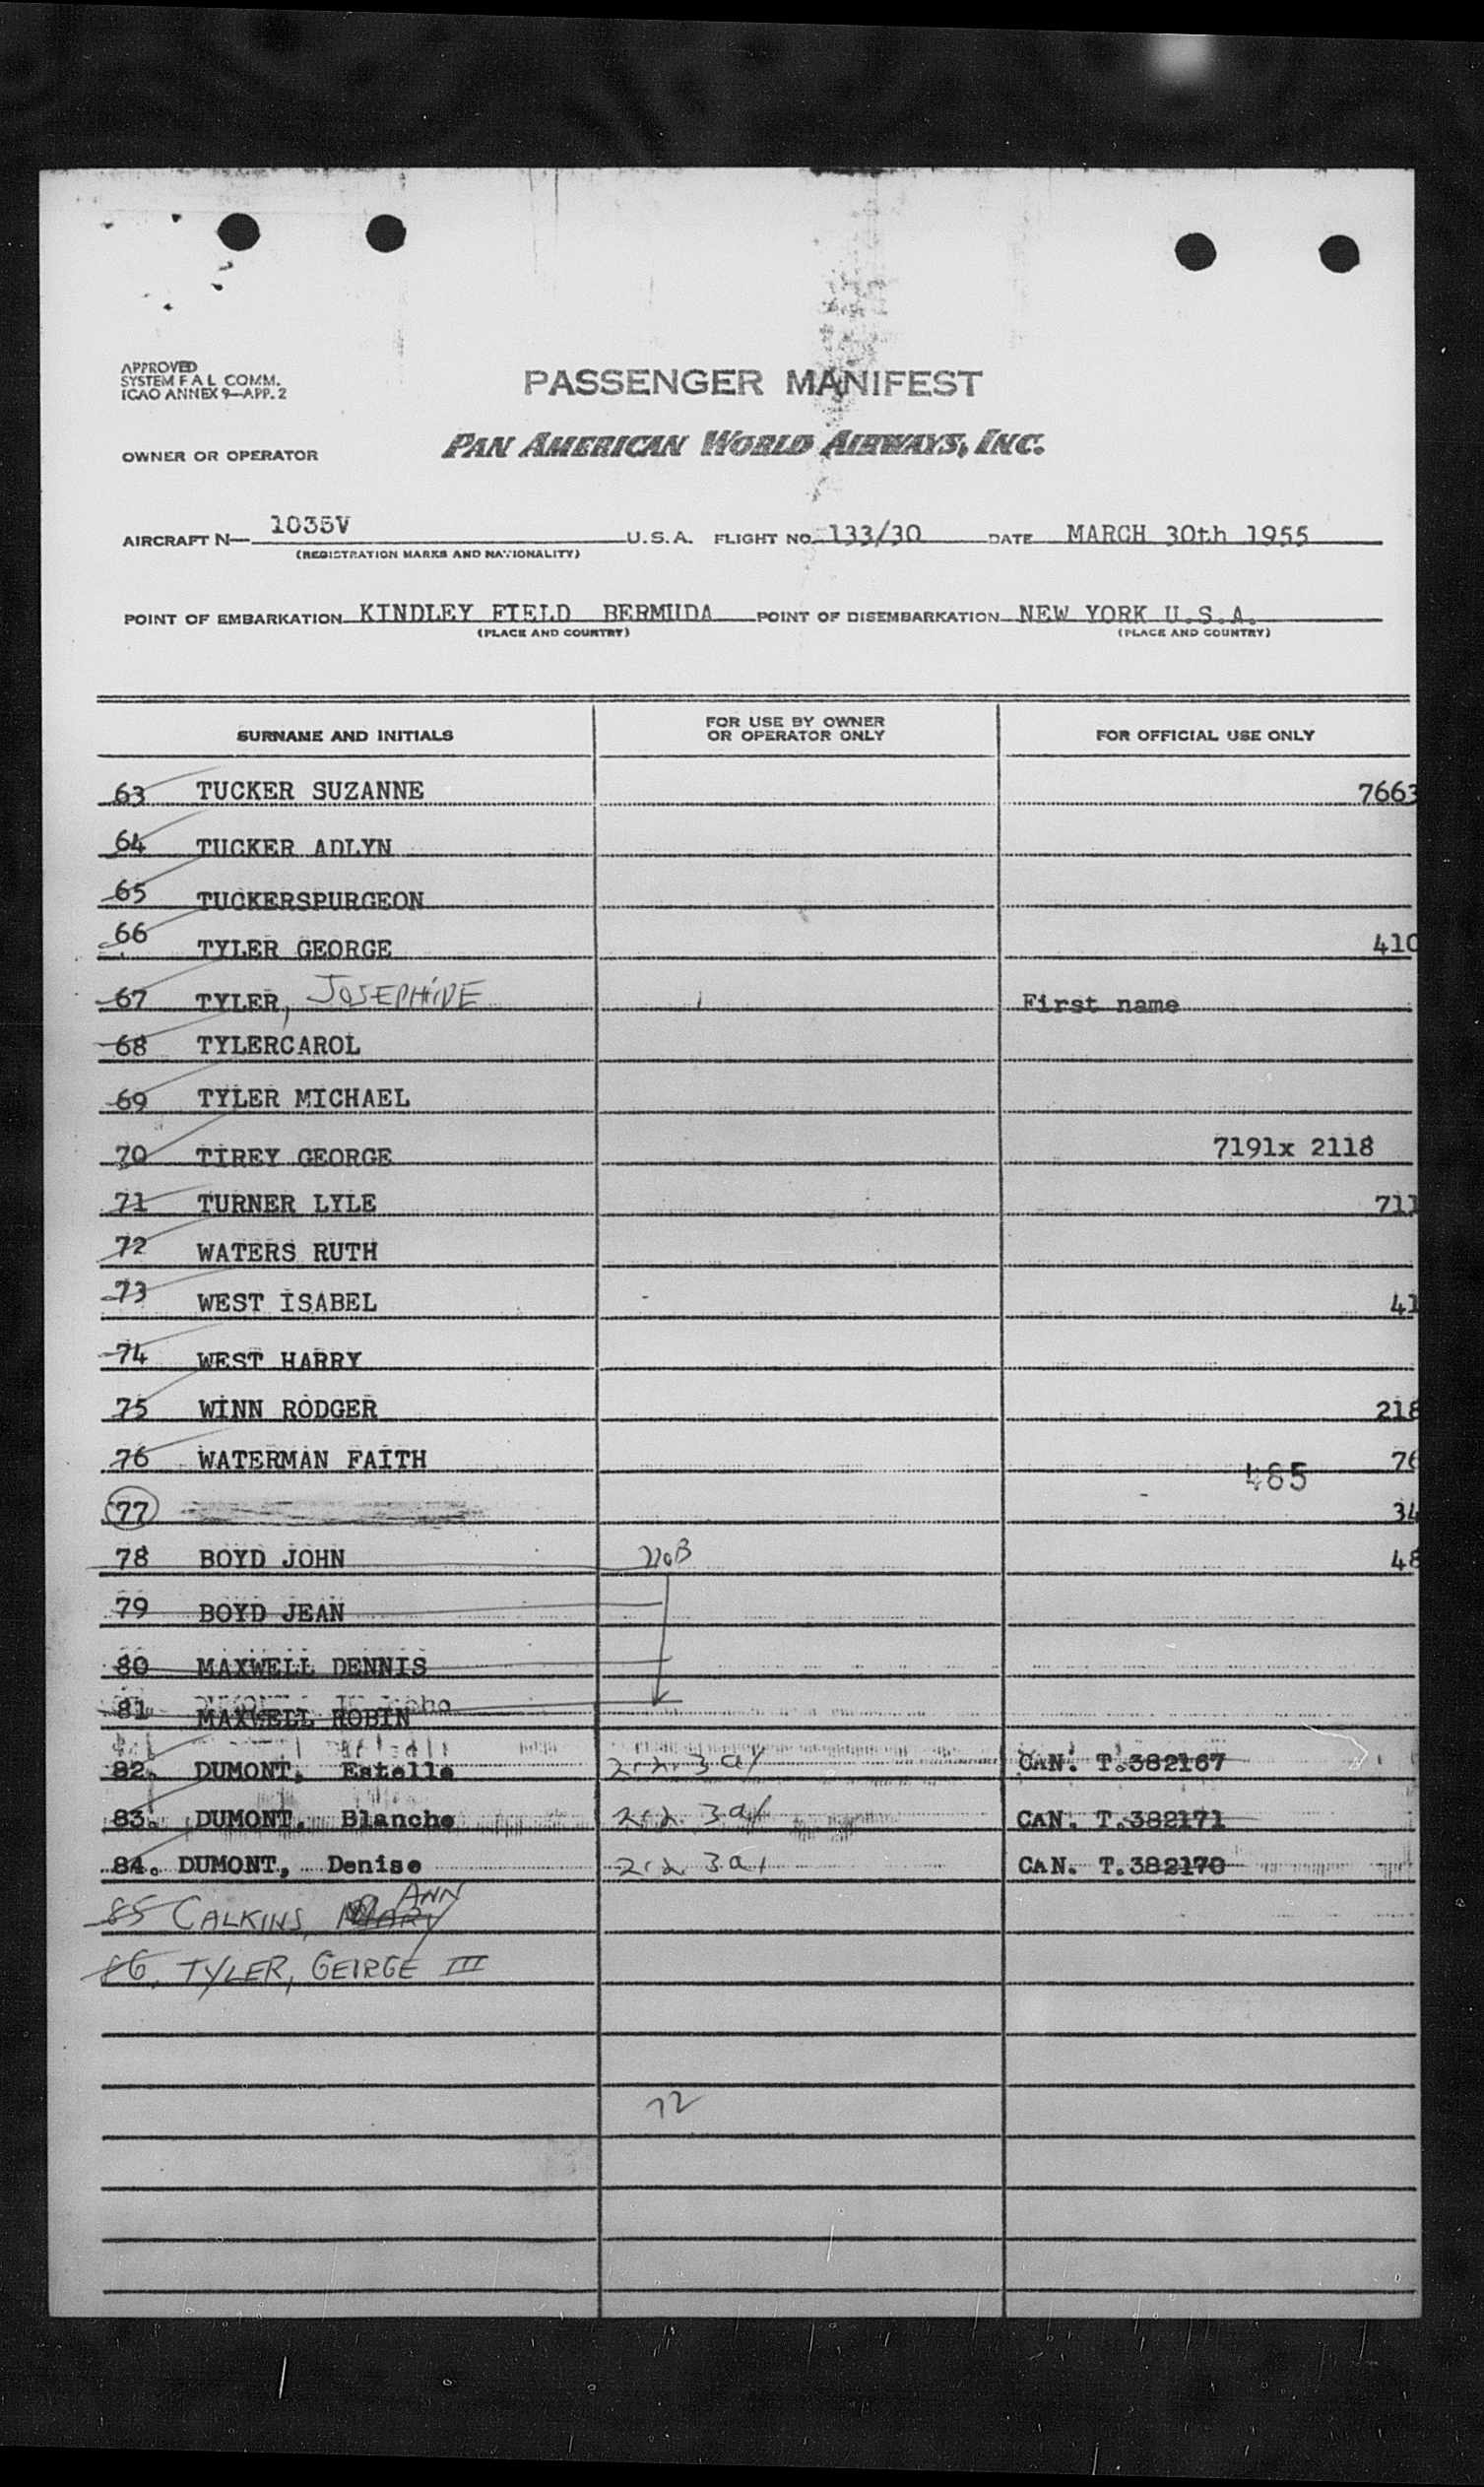 APPROVED
SYSTEM F A L COMM.
ICAO ANNEX 9—APP. 2
PASSENGER MANIFEST
OWNER OR OPERATOR PAN AMERICAN WORLD AIRWAYS, INC.
AIRCRAFT N— 1035V U.S.A. FLIGHT NO. 133/30 DATE MARCH 30th 1955
(REGISTRATION MARKS AND NATIONALITY)
POINT OF EMBARKATION KINDLEY FIELD BERMUDA POINT OF DISEMBARKATION NEW YORK U.S.A.
(PLACE AND COUNTRY) (PLACE AND COUNTRY)
SURNAME AND INITIALS FOR USE BY OWNER OR OPERATOR ONLY FOR OFFICIAL USE ONLY
63 TUCKER SUZANNE 7663
64 TUCKER ADLYN
65 TUCKERSPURGEON
66 TYLER GEORGE 410
67 TYLER, JOSEPHINE First name
68 TYLERCAROL
69 TYLER MICHAEL
70 TIREY GEORGE 7191x 2118
71 TURNER LYLE 711
72 WATERS RUTH
73 WEST ISABEL 41
74 WEST HARRY
75 WINN RODGER 218
76 WATERMAN FAITH 76
465
77 34
78 BOYD JOHN NOB 48
79 BOYD JEAN
80 MAXWELL DENNIS
81 MAXWELL ROBIN
82. DUMONT, Estelle CAN. T.382167
83. DUMONT, Blanche CAN. T.382171
84. DUMONT, Denise CAN. T.382170
85 CALKINS, MARY ANN
86. TYLER, GEIRGE III
72